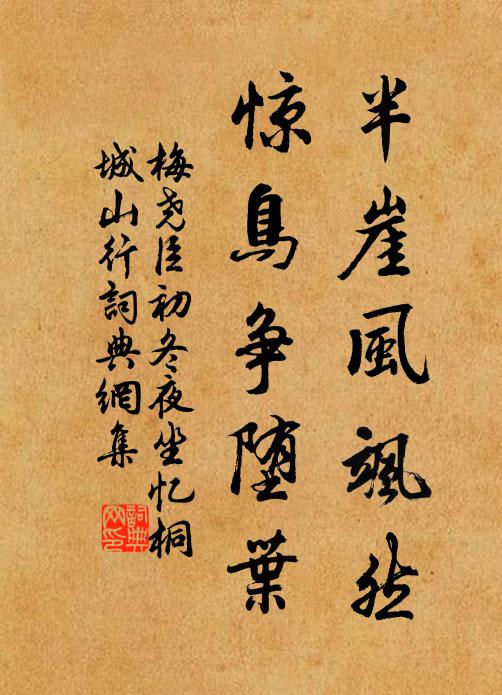 半崖風颯然
惊鳥争堕葉
梅尧臣初冬夜坐忆桐
城山行詞典網集
詞典网印